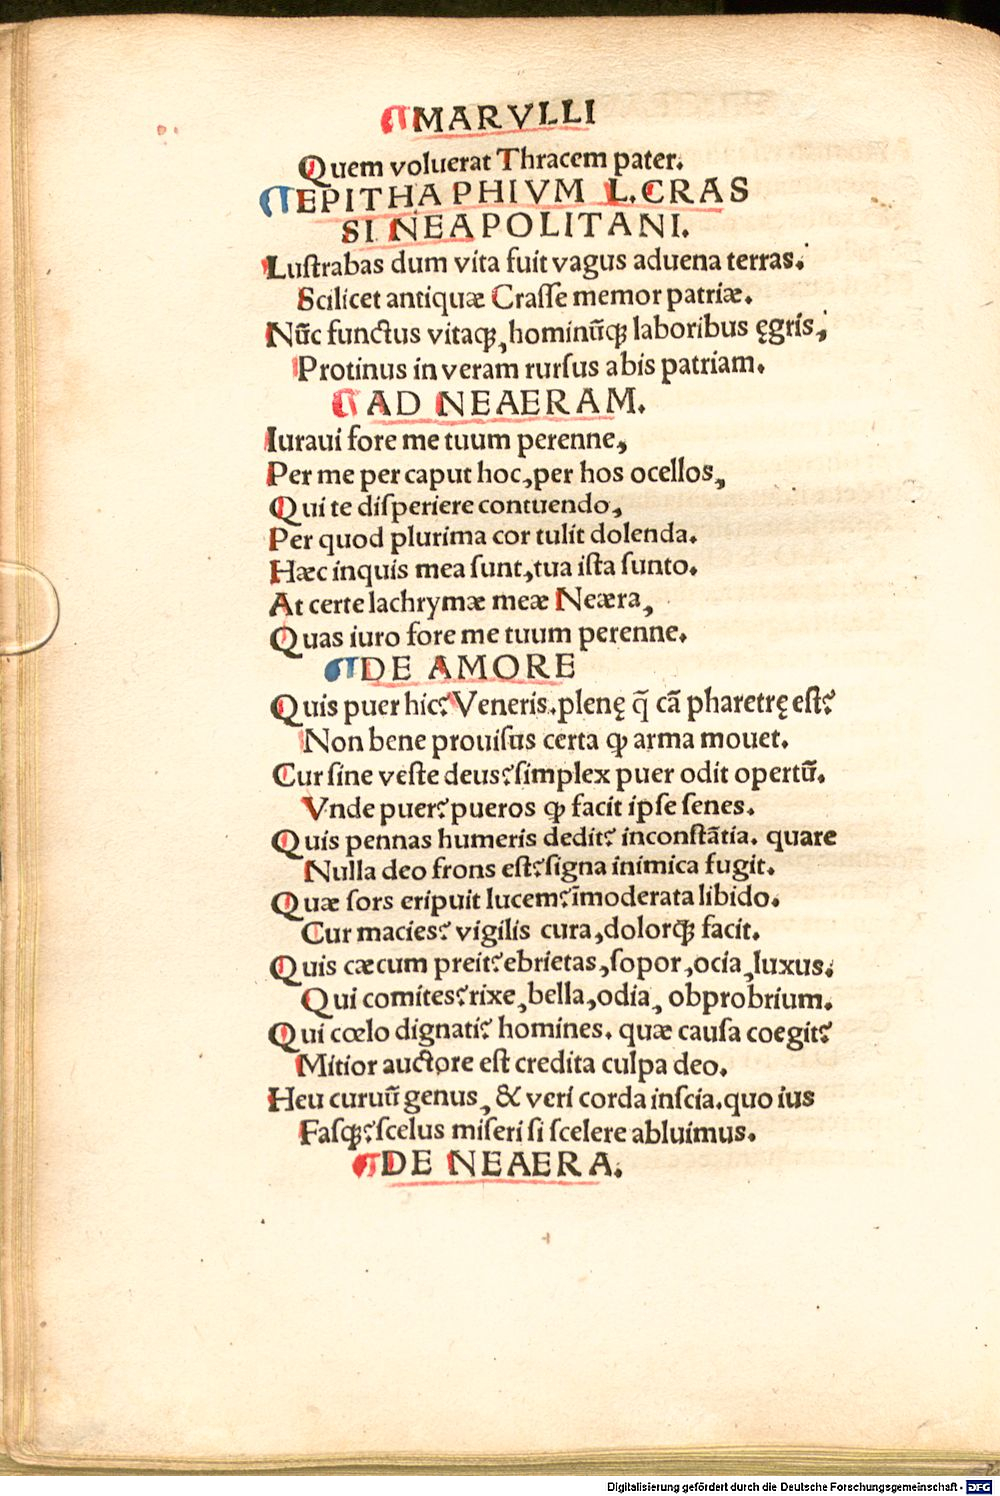 MARVLLI
Quem voluerat Thracem pater.
EPITHAPHIVM L. CRAS
SI NEAPOLITANI.
Luſtrabas dum vita fuit vagus aduena terras.
Scilicet antiquæ Craſſe memor patriæ.
Nūc functus vitaqꝫ, hominūqꝫ laboribus ęgris,
Protinus in veram rurſus abis patriam.
AD NEAERAM.
Iuraui fore me tuum perenne,
Per me per caput hoc, per hos ocellos,
Qui te diſperiere contuendo,
Per quod plurima cor tulit dolenda.
Hæc inquis mea ſunt, tua iſta ſunto.
At certe lachrymæ meæ Neæra,
Quas iuro fore me tuum perenne.
DE AMORE
Quis puer hic? Veneris. plenę q̄ cā pharetrę eſt?
Non bene prouiſus certa ꝙ arma mouet.
Cur ſine veſte deus? ſimplex puer odit opertū.
Vnde puer? pueros ꝙ facit ipſe ſenes.
Quis pennas humeris dedit? inconſtātia. quare
Nulla deo frons eſt? ſigna inimica fugit.
Quæ ſors eripuit lucem? īmoderata libido.
Cur macies? vigilis cura, dolorqꝫ facit.
Quis cæcum preit? ebrietas, ſopor, ocia, luxus.
Qui comites? rixe, bella, odia, obprobrium.
Qui cœlo dignati? homines. quæ cauſa coegit?
Mitior auctore eſt credita culpa deo.
Heu curuū genus, & veri corda inſcia. quo ius
Faſqꝫ? ſcelus miſeri ſi ſcelere abluimus.
DE NEAERA.
Digitalisierung gefördert durch die Deutsche Forschungsgemeinschaft - DFG